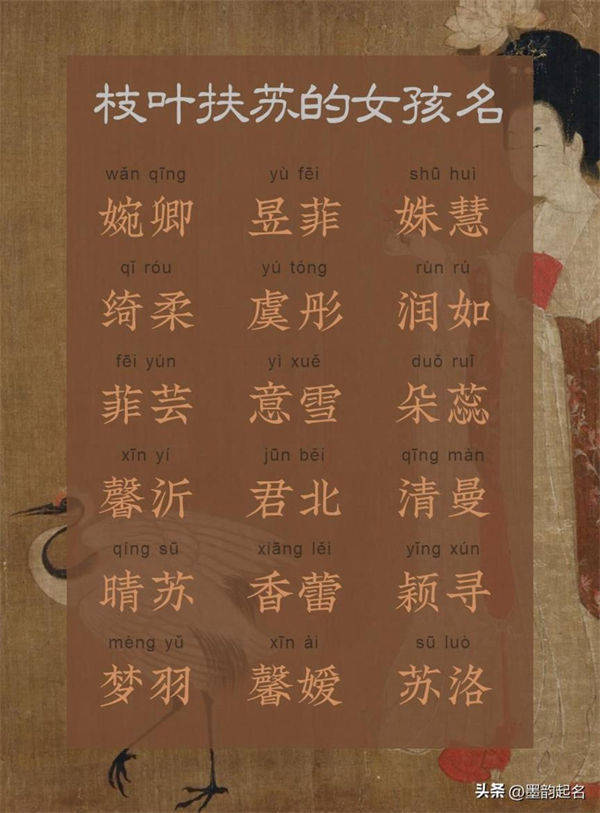 枝叶扶苏的女孩名
wǎn qīng yù fēi shū huì
婉卿 昱菲 姝慧
qǐ róu yú tóng rùn rú
绮柔 虞彤 润如
fēi yún yì xuě duǒ ruǐ
菲芸 意雪 朵蕊
xīn yí jūn běi qīng màn
馨沂 君北 清曼
qíng sū xiāng lěi yǐng xún
晴苏 香蕾 颖寻
mèng yǔ xīn ài sū luò
梦羽 馨嫒 苏洛
头条 @墨韵起名